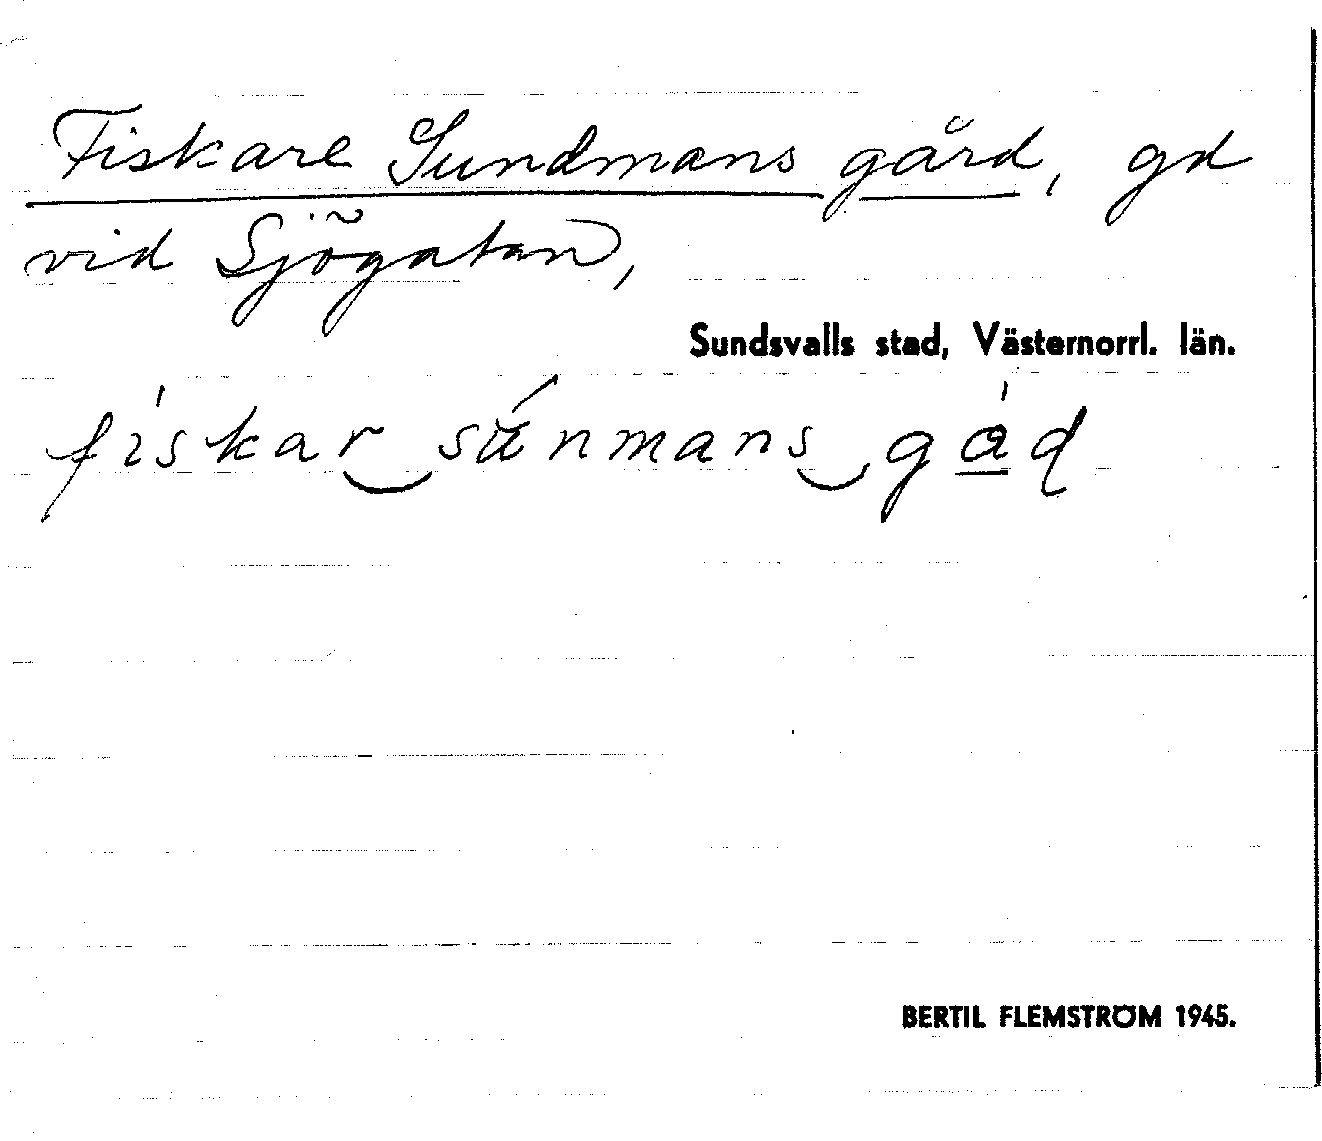 Fiskare Sundmans gård, gd
vid Sjögatan,
Sundsvalls stad, Västernorrl. län.
fiskar sunmans gad
BERTIL FLEMSTRÖM 1945.